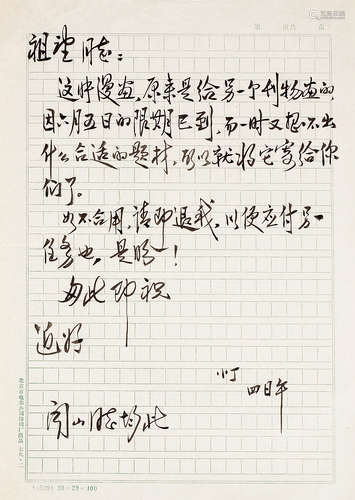 祖望同志：
这件漫画，原来是给另一个刊物画的
因六月五日的限期已到，而一时又想不出
什么合适的题材，所以就将它寄给你
们了。
如不合用，请即退我，以便应付另一
任务也，是盼！
匆此即祝
近好
小丁
四日午
同志均此
20×20＝400